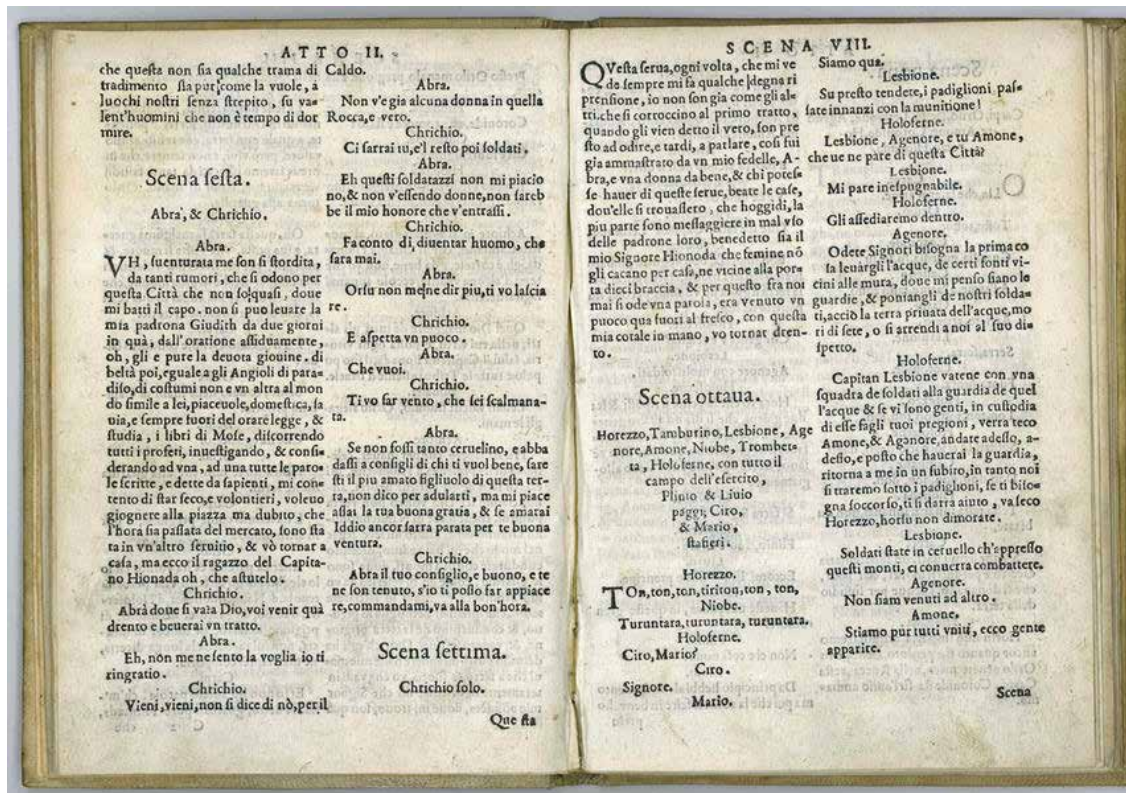 ATTO II.
che questa non sia qualche trama di
tradimento sia pur come la vuole, a
luochi nostri senza strepito, su va=
lent'huomini che non è tempo di dor
mire.
Scena sesta.
Abra, & Chrichio.
Abra.
VH, suenturata me son sì stordita,
da tanti rumori, che si odono per
questa Città che non so quasi, doue
mi batti il capo. non si può leuare la
mia padrona Giudith da due giorni
in quà, dall'oratione assiduamente,
oh, gli e pure la deuota giouine. di
beltà poi, eguale a gli Angioli di para=
diso, di costumi non e vn altra al mon
do simile a lei, piaceuole, domestica, sa
uia, e sempre fuori del orare legge, &
studia, i libri di Mose, discorrendo
tutti i profeti, inuestigando, & consi=
derando ad vna, ad una tutte le paro=
le scritte, e dette da sapienti, mi con=
tento di star seco, e volontieri, voleuo
giognere alla piazza ma dubito, che
l'hora sia passata del mercato, sono sta
ta in vn'altro seruitio, & vò tornar a
casa, ma ecco il ragazzo del Capita=
no Hionada oh, che astutelo.
Chrichio.
Abra doue si va? a Dio, voi venir quà
drento e beuerai vn tratto.
Abra.
Eh, non me ne sento la voglia io ti
ringratio.
Chrichio.
Vieni, vieni, non si dice di nò, per il
Caldo.
Abra.
Non v'e gia alcuna donna in quella
Rocca, e vero.
Chrichio.
Ci sarrai tu, e'l resto poi soldati.
Abra.
Eh questi soldatazzi non mi piacio
no, & non v'essendo donne, non sareb
be il mio honore che v'entrassi.
Chrichio.
Fa conto di, diuentar huomo, che
sara mai.
Abra.
Orsu non me ne dir piu, ti vo lascia
re.
Chrichio.
E aspetta vn puoco.
Abra.
Che vuoi.
Chrichio.
Ti vo far vento, che sei scalmana-
ta.
Abra.
Se non fossi tanto ceruelino, e abba
dassi a consigli di chi ti vuol bene, sare
sti il piu amato figliuolo di questa ter=
ra, non dico per adularti, ma mi piace
assai la tua buona gratia, & se amarai
Iddio ancor sarra parata per te buona
ventura.
Chrichio.
Abra il tuo consiglio, e buono, e te
ne son tenuto, s'io ti posso far appiace
re, commandami, va alla bon'hora.
Scena settima.
Chrichio solo.
Que sta
SCENA VIII.
QVesta serua, ogni volta, che mi ve
de sempre mi fa qualche sdegna ri
prensione, io non son gia come gli al=
tri. che si corroccino al primo tratto,
quando gli vien detto il vero, son pre
sto ad odire, e tardi, a parlare, cosi fui
gia ammastrato da vn mio fedelle, A-
bra, e vna donna da bene, & chi potes=
se hauer di queste serue, beate le case,
dou'elle si trouassero, che hoggidi, la
piu parte sono messaggiere in mal vso
delle padrone loro, benedetto sia il
mio Signore Hionoda che femine nõ
gli cacano per casa, ne vicine alla por=
ta dieci braccia, & per questo fra noi
mai si ode vna parola, era venuto vn
puoco qua fuori al fresco, con questa
mia cotale in mano, vo tornar dren-
to.
Scena ottaua.
Horezzo, Tamburino, Lesbione, Age
nore, Amone, Niobe, Trombet=
ta, Holoferne, con tutto il
campo dell'esercito,
Plinio & Liuio
paggi, Ciro,
& Mario,
stafieri.
Horezzo.
TOn, ton, ton, tiriton, ton, ton,
Niobe.
Turuntara, turuntara, turuntara.
Holoferne.
Ciro, Mario?
Ciro.
Signore.
Mario.
Siamo qua.
Lesbione.
Su presto tendete, i padiglioni pas=
sate innanzi con la munitione!
Holoferne.
Lesbione, Agenore, e tu Amone,
che ue ne pare di questa Città?
Lesbione.
Mi pare inespugnabile.
Holoferne.
Gli assediaremo dentro.
Agenore.
Odete Signori bisogna la prima co
sa leuargli l'acque, de certi fonti vi=
cini alle mura, doue mi penso siano le
guardie, & poniangli de nostri solda=
ti, acciò la terra priuata dell'acque, mo
ri di sete, o si arrendi a noi al suo di=
spetto.
Holoferne.
Capitan Lesbione vatene con vna
squadra de soldati alla guardia de quel
l'acque & se vi sono genti, in custodia
di esse fagli tuoi pregioni, verra teco
Amone, & Aganore, andate adesso, a-
desso, e posto che hauerai la guardia,
ritorna a me in un subito, in tanto noi
si traremo sotto i padiglioni, se ti biso=
gna soccorso, ti si darra aiuto, va seco
Horezzo, horsu non dimorate.
Lesbione.
Soldati state in ceruello ch'appresso
questi monti, ci conuerra combattere.
Agenore.
Non siam venuti ad altro.
Amone.
Stiamo pur tutti vniti, ecco gente
apparire.
Scena